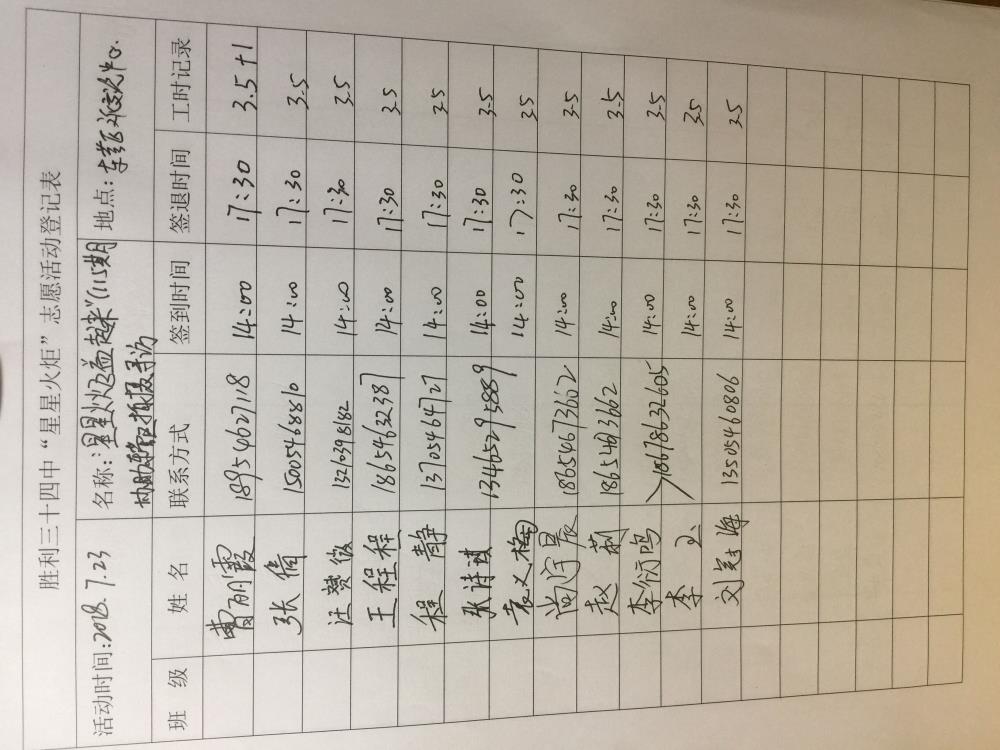 胜利三十四中“星星火炬”志愿活动登记表
活动时间:2018.7.23 名称:星星火炬益起来"(115期 地点:
协助 拍摄寻访
班 级 姓 名 联系方式 签到时间 签退时间 工时记录
曹丽霞 18954627118 14:00 17:30 3.5+1
张倩 15005468810 14:00 17:30 3.5
汪赞俊 13210398182 14:00 17:30 3.5
王程程 18654632387 14:00 17:30 3.5
程 静 13705464727 14:00 17:30 3.5
张诗琪 13465295889 14:00 17:30 3.5
袁义梅 14:00 17:30 3.5
尚宇晨 18654673662 14:00 17:30 3.5
赵 莉 18654693662 14:00 17:30 3.5
李衍鸣 18678632605 14:00 17:30 3.5
李 14:00 17:30 3.5
刘 海 13505460806 14:00 17:30 3.5